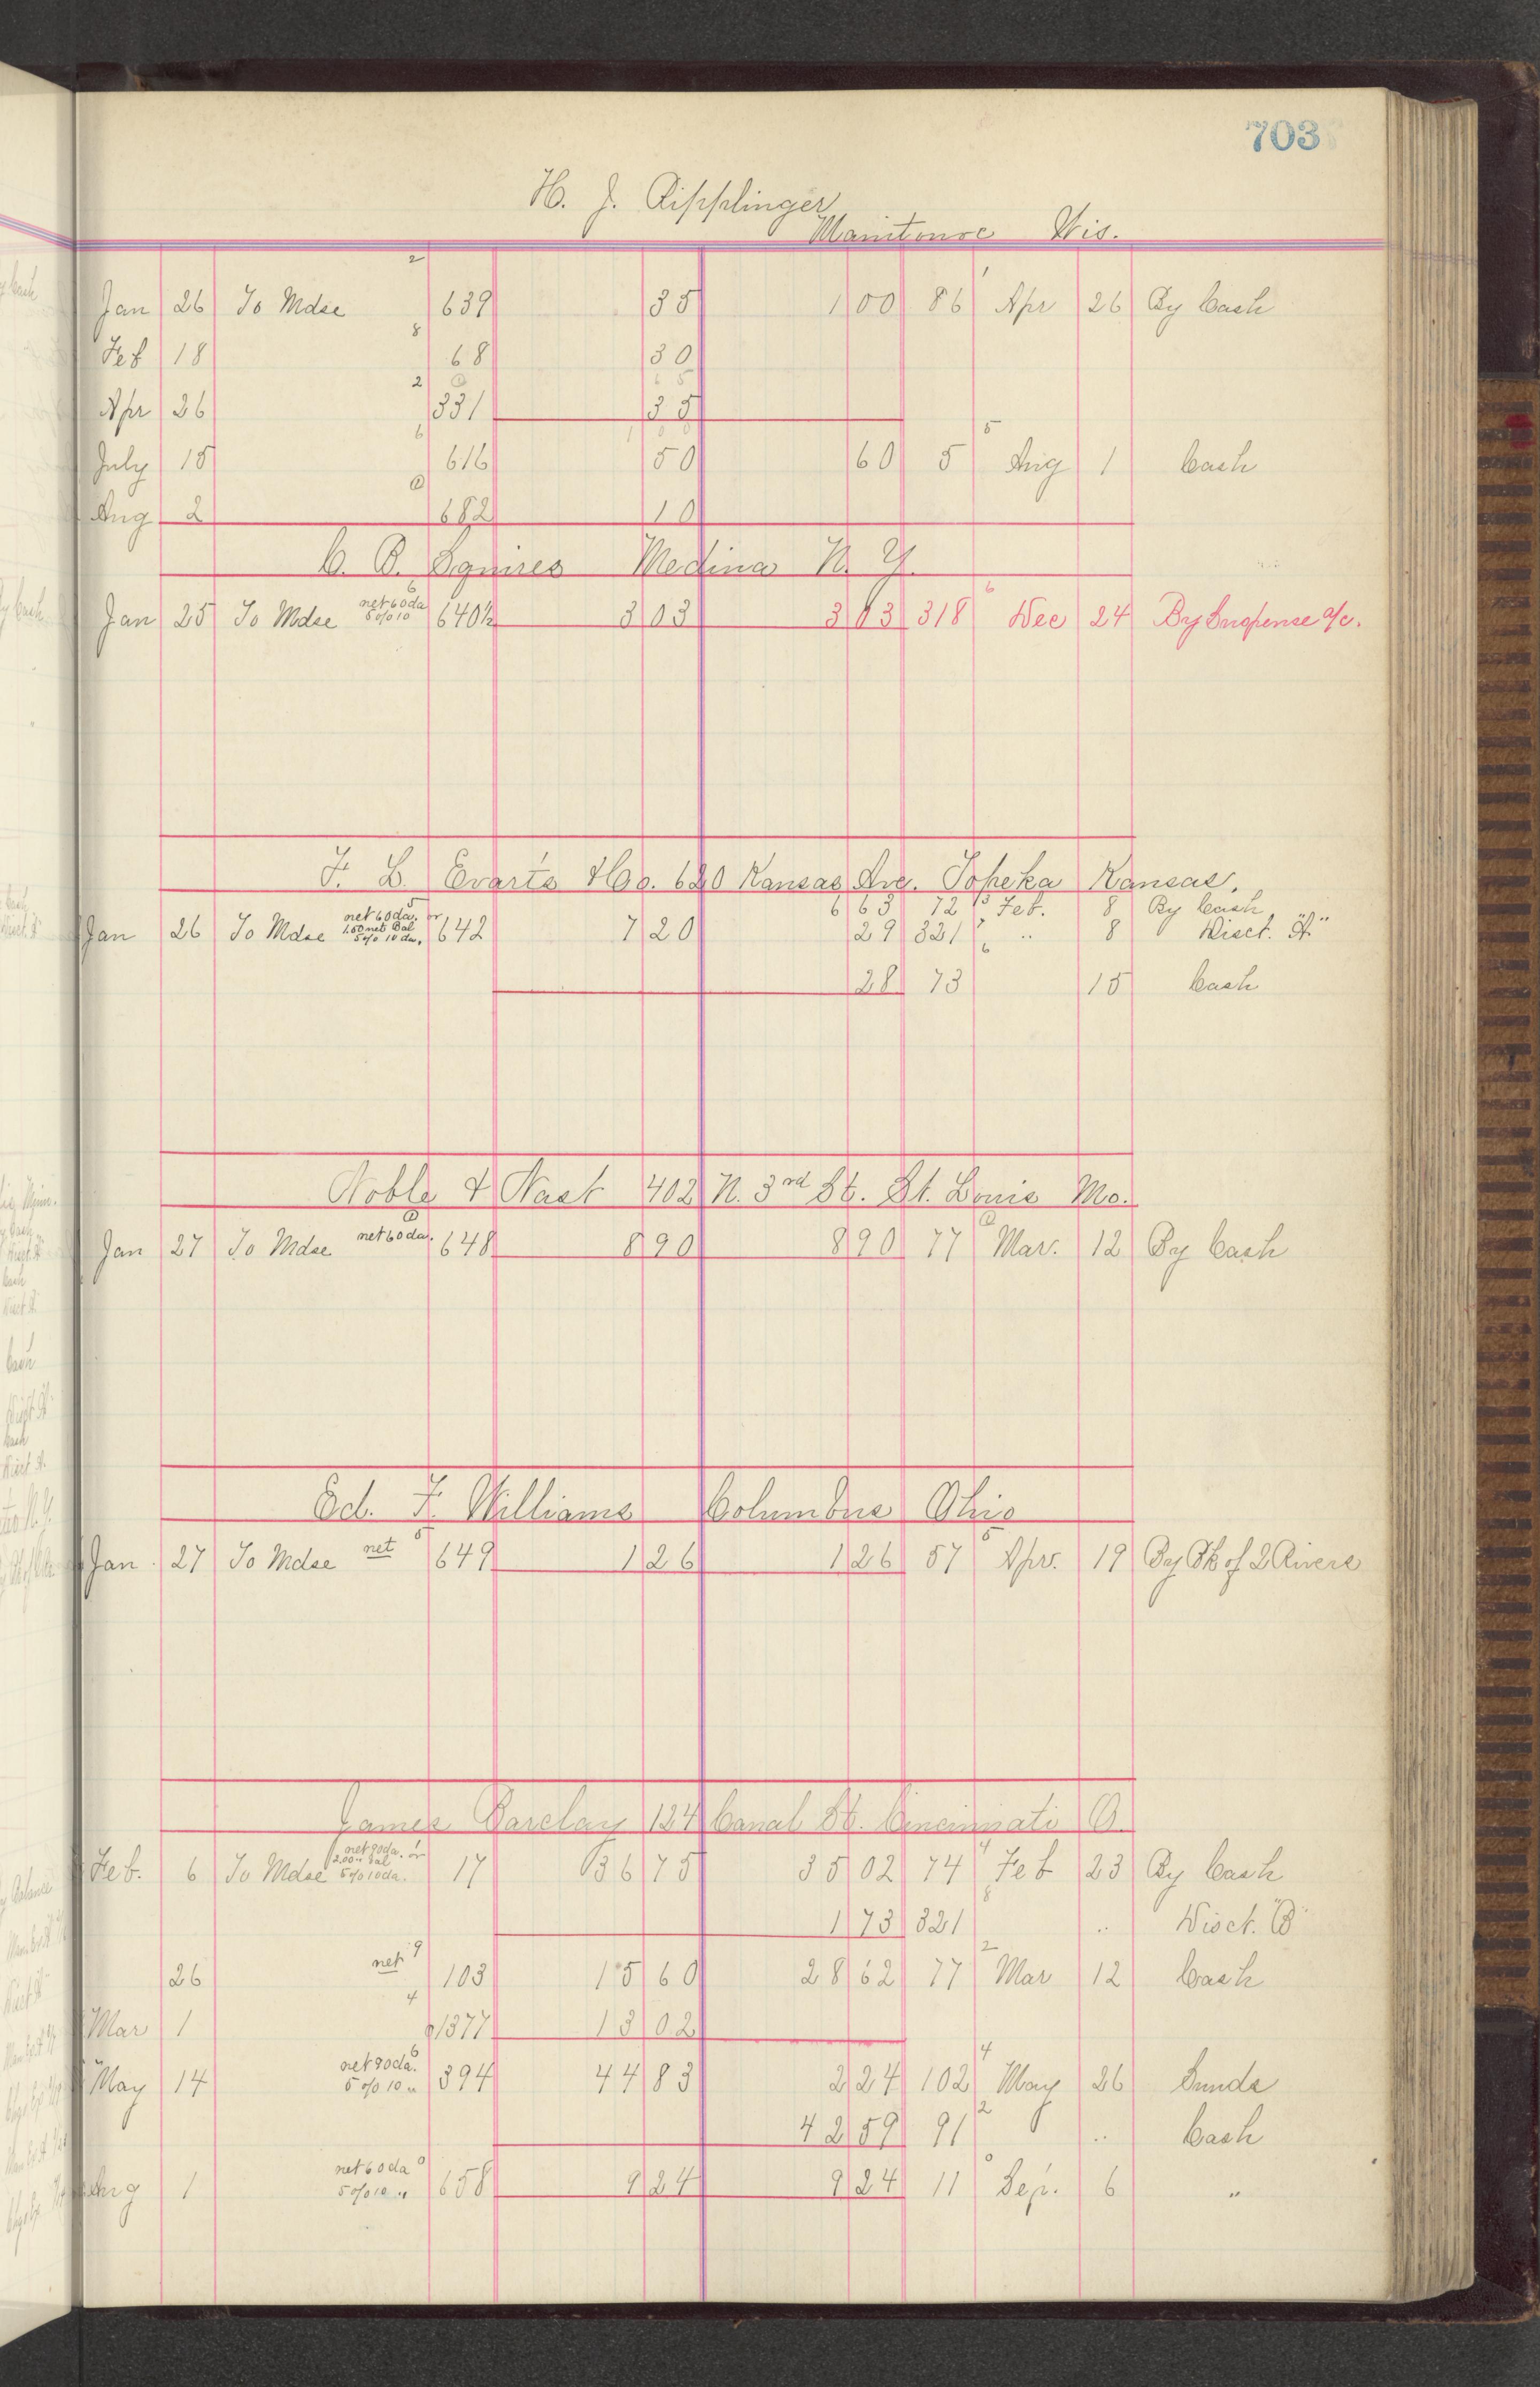 703
H. J. Ripplinger
Manitowoc Wis.
2 1
Jan 26 To Mdse 639 35 1 00 86 Apr 26 By Cash
8
Feb 18 68 30
2
Apr 26 331 35
6 5
July 15 616 50 60 5 Aug 1 Cash
Aug 2 682 10
C. B. Squires Medina N. Y.
6 6
Jan 25 To Mdse net 60 da 5 o/o 10 640½ 3 03 3 03 318 Dec 24 By Suspense a/c.
F. L. Evarts & Co. 620 Kansas Ave. Topeka Kansas.
6 63 72 3 Feb. 8 By Cash
Jan 26 To Mdse net 60 da. or 1.50 net Bal 5 o/o 10 da. 5 642 7 20 29 321 7 " 8 Disct. "A"
6
28 73 15 Cash
Noble & Nast 402 N. 3rd St. St. Louis Mo.
Jan 27 To Mdse net 60 da. 648 8 90 8 90 77 Mar. 12 By Cash
Ed. F. Williams Columbus Ohio
5 5
Jan. 27 To Mdse net 649 1 26 1 26 57 Apr. 19 By Bk of 2 Rivers
James Barclay 124 Canal St. Cincinnati O.
1 4
Feb. 6 To Mdse net 90 da. or 2.00 " bal 5 o/o 10 da. 17 36 75 35 02 74 Feb 23 By Cash
8
1 73 321 " Disct. "B"
9 2
26 net 103 15 60 28 62 77 Mar 12 Cash
4
Mar 1 1377 13 02
6 4
May 14 net 90 da. 5 o/o 10 " 394 44 83 2 24 102 May 26 Sunds
2
42 59 91 " Cash
0 0
Aug 1 net 60 da 5 o/o 10 " 658 9 24 9 24 11 Sep. 6 "